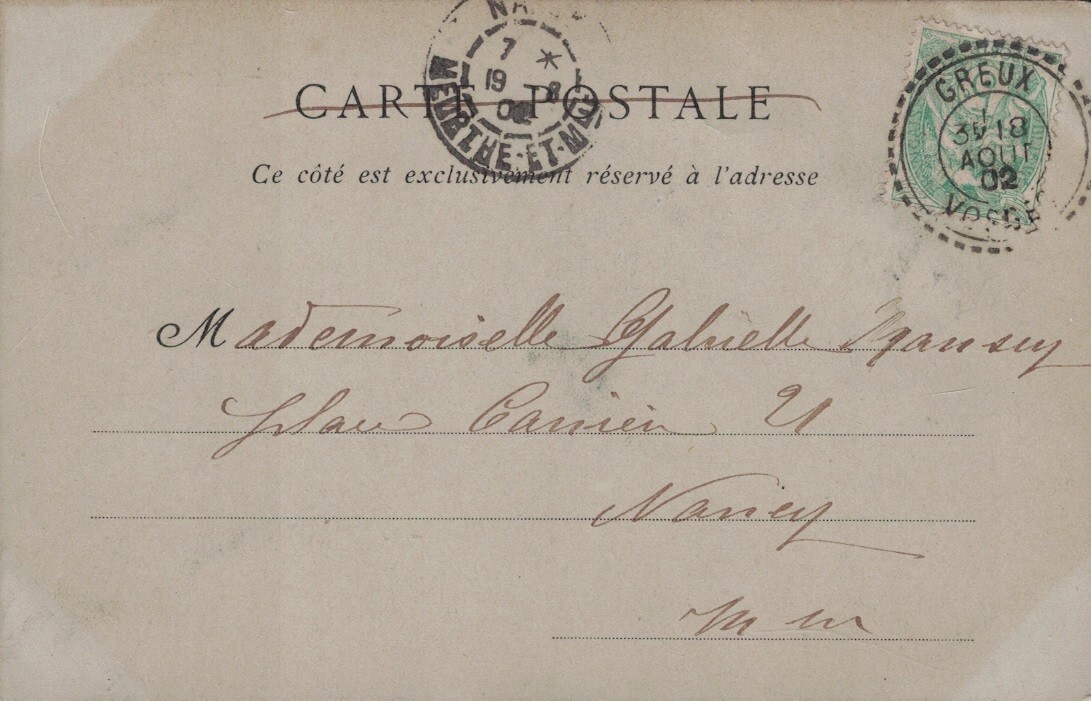 NA
7 *
19 8
02
MEURTHE-ET-M
CARTE POSTALE
Ce côté est exclusivement réservé à l'adresse
GREUX
1
3E 18
AOUT
02
VOSGE
Mademoiselle Gabrielle
place Carrière 21
Nancy